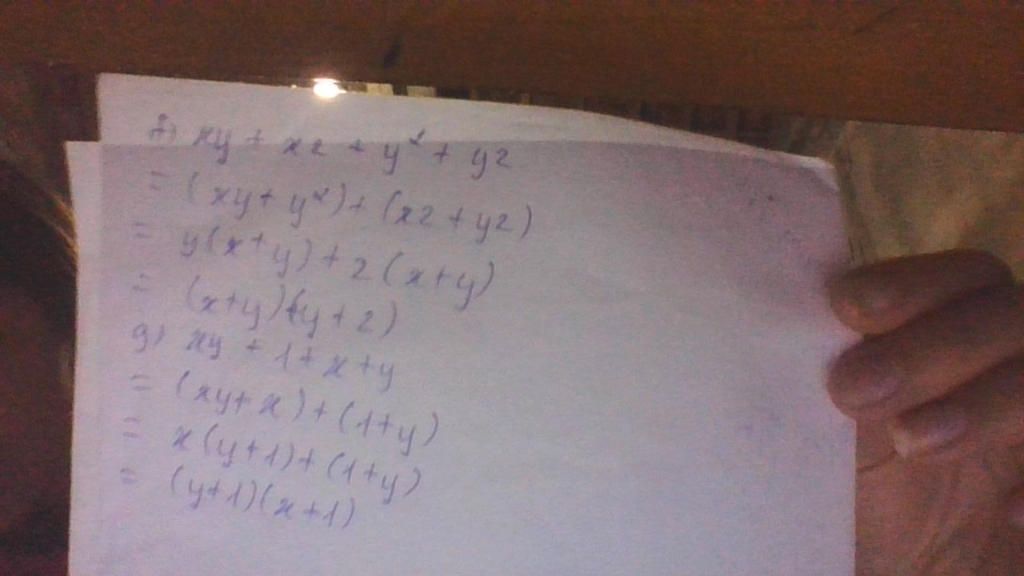 f) xy + xz + y² + yz
= (xy + y²) + (xz + yz)
= y(x+y) + z(x+y)
= (x+y)(y+z)
g) xy + 1 + x + y
= (xy + x) + (1+y)
= x(y+1) + (1+y)
= (y+1)(x+1)